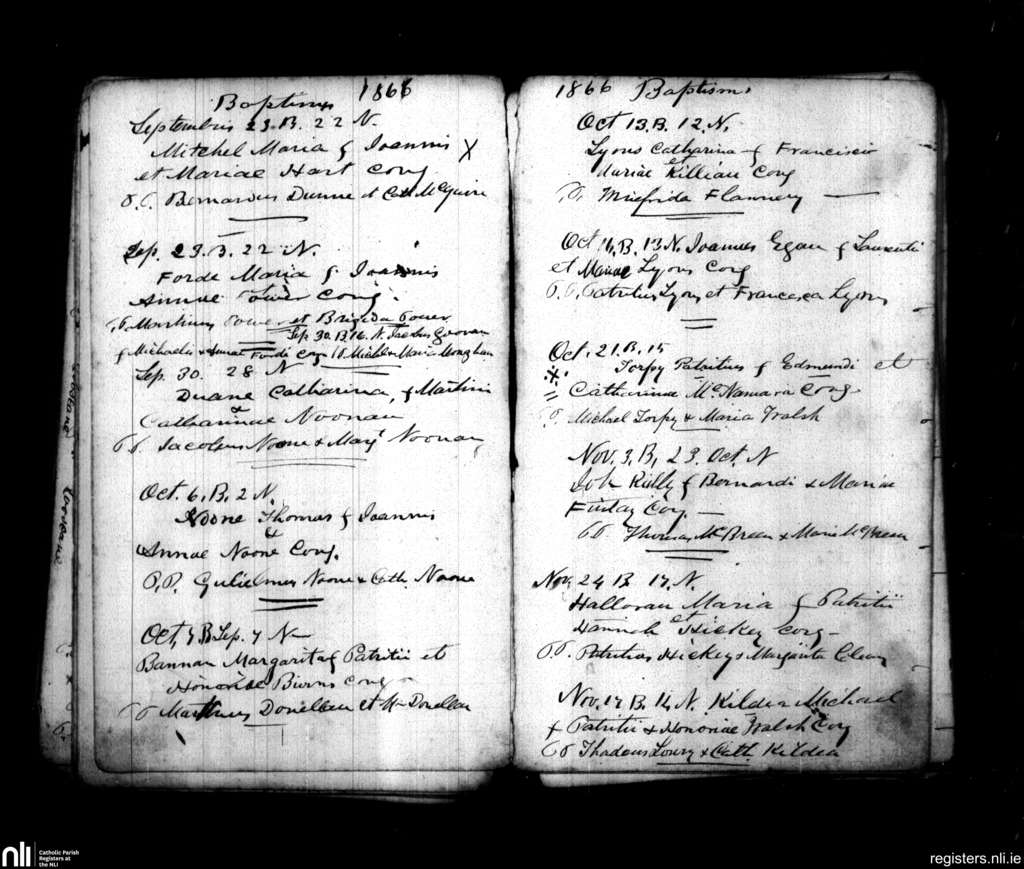 Baptisms 1866
Septembris 23. B. 22 N.
Mitchel Maria f Joannis X
et Mariae Hart Conj
P.P. Bernardus Dunne et Cath McGuire
Sep. 23. B. 22 N.
Forde Maria f Joannis
Annae Power Conj.
P.P. Martinus Power et Brigida Power
Sep 30. B. 16. N. Jacobus
f Michaelis & Annae Forde Conj PP Michl & Maria Monghan
Sep. 30. 28 N
Duane Catharina, f Martini
&
Catharinae Noonan
P.P. Jacobus Noone & Mary Noonan
Oct. 6. B. 2 N.
Noone Thomas f Joannis
&
Annae Noone Conj.
P.P. Gulielmus Noone & Cath. Noone
Oct. 7 B Sep. 7 N
Bannan Margarita f Patritii et
Honoriae Birns Conj
P P Donellan et Donellan
1866 Baptisms
Oct 13. B. 12. N.
Lyons Catharina f Francisci
et
Mariae Killian Conj
P. Flannery
Oct 16. B. 13 N. Joannes Egan f Laurentii
et Mariae Lyons Conj
P.P. Patritius Lyons et Francesca Lyons
Oct. 21. B. 15
Torpy Patritius f Edmundi et
Catharina McNamara Conj
P.P. Michael Torpy & Maria Walsh
Nov. 3. B. 23. Oct. N
Joh Reilly f Bernardi & Mariae
Finlay Conj.
P.P. Thomas McBreen & Maria McBreen
Nov. 24 B 17. N.
Halloran Maria f Patritii
et
Hannah Hickey Conj
P.P. Patritius Hickey & Margarita Cleary
Nov. 17 B. 14 N. Kildea Michael
f Patritii & Honoriae Walsh Conj
P P Thadeus Lowry & Cath. Kildea
nli
Catholic Parish
Registers at
the NLI
registers.nli.ie